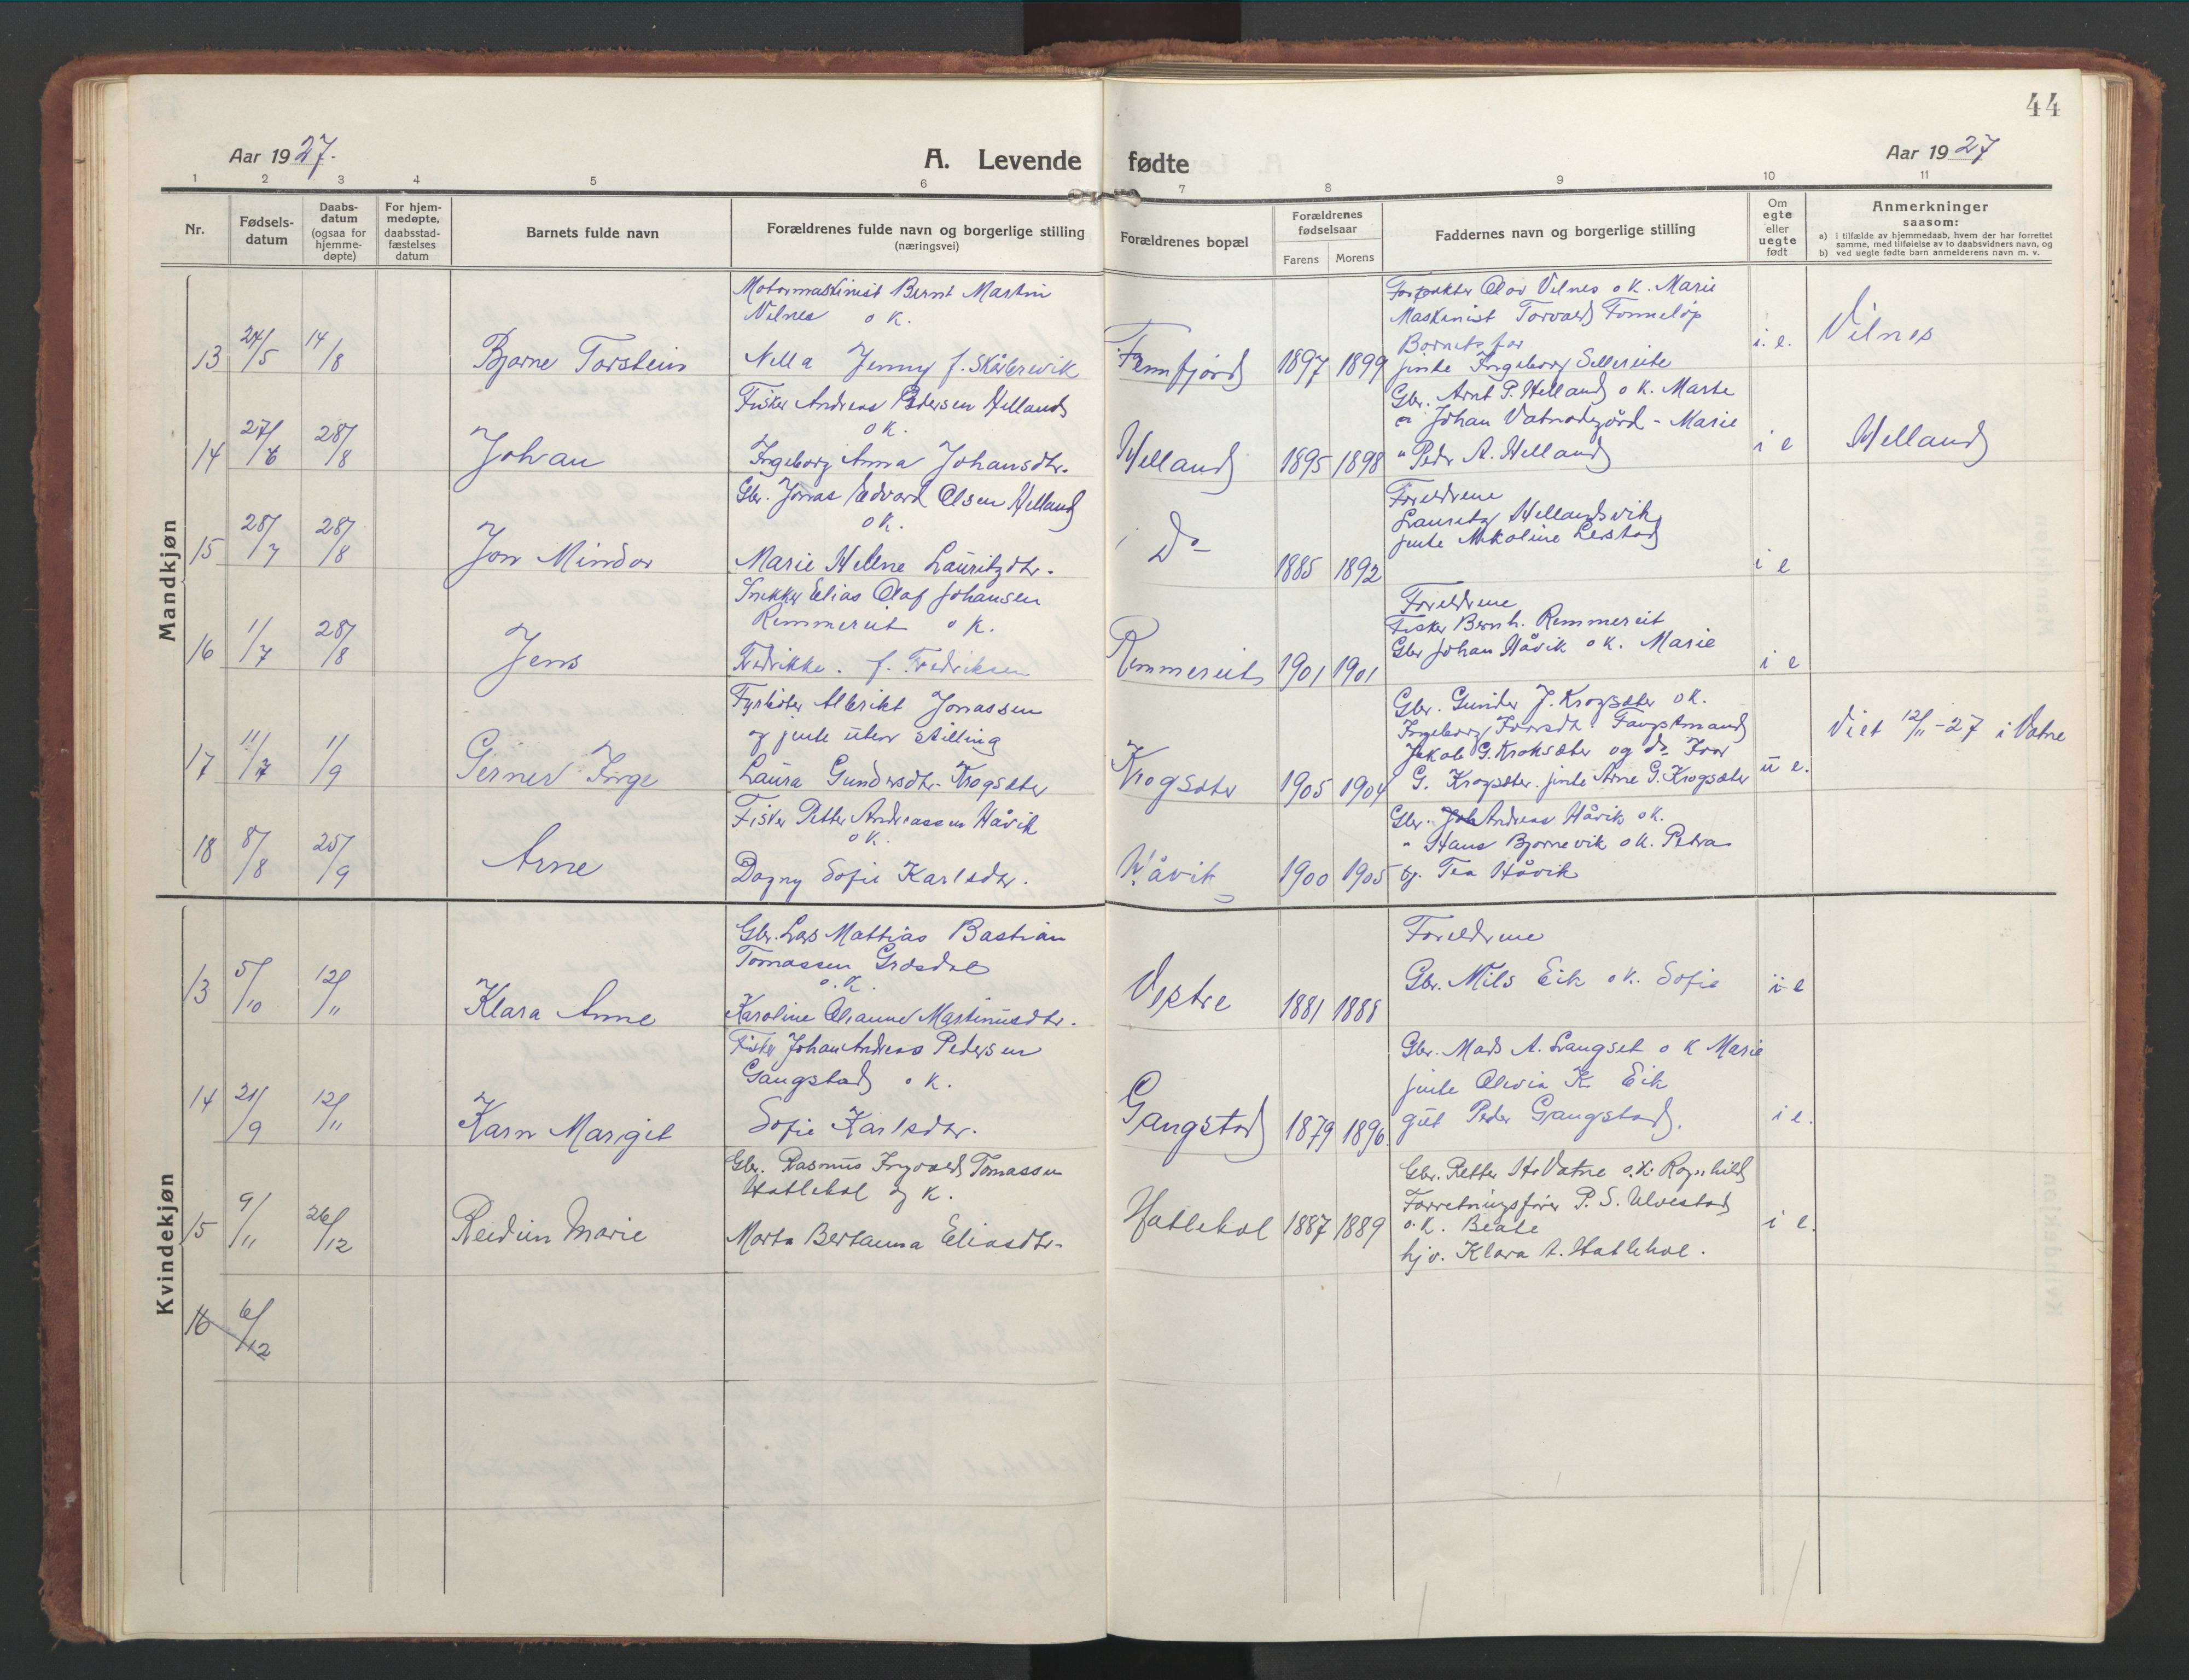 44
Aar 1927.
A. Levende fødte
Aar 1927
1 2 3 4 5 6 7 8 9 10 11
Nr.
Fødsels-
datum
Daabs-
datum
(ogsaa for
hjemme-
døpte)
For hjem-
medøpte,
daabsstad-
fæstelses
datum
Barnets fulde navn
Forældrenes fulde navn og borgerlige stilling
(næringsvei)
Forældrenes bopæl
Forældrenes
fødselsaar
Farens Morens
Faddernes navn og borgerlige stilling
Om
egte
eller
uegte
født
Anmerkninger
saasom:
a) i tilfælde av hjemmedaab, hvem der har forrettet
samme, med tilføielse av to daabsvidners navn, og
b) ved uegte fødte barn anmelderens navn m. v.
Mandkjøn
13 24/5 14/8 Bjarne Torstein
Motormaskinist Bernt Martin
Vilnes o K.
Nella Jenny f.
1897 1899
Olav Vilnes o K. Marie
Maskinist Torvald
Barnets far
jente Ingeborg Sellereite
i. e. Vilnes
14 27/6 28/8 Johan
Fisker Andreas Pedersen Helland
o K.
Ingeborg Anna Johansdtr.
Helland 1895 1898
Gbr. Arnt P. Helland o K. Marte
Johan - Marie
" Peder A. Helland
i e Helland
15 28/7 28/8 Jon Mindor
Gbr. Jonas Edvard Olsen Helland
o K.
Marie Helene Lauritzdtr.
Do 1885 1892
Foreldrene
Lauritz Hellandsvik
jente Nikoline Leistad
i e
16 1/7 28/8 Jens
Snekker Elias Olaf Johansen
Remmereit o K.
Fredrikke. f. Fredriksen
Remmereit 1901 1901
Foreldrene
Fisker Bernh. Remmereit
Gbr Johan Håvik o K. Marie
i e
17 11/7 1/9 Gerner Inge
Fyrbøter Albrikt Jonassen
og jente uten stilling
Laura Gundersdtr. Krogsæter
Krogsæter 1905 1904
Gbr. Gunder J. Krogsæter o K.
Ingeborg
Jakob G. Kroksæter og do Ivar
G. Krogsæter. jente Arne G. Krogsæter
u e. Viet 12/11 - 27 i Vatne
18 8/8 25/9 Arne
Fisker Petter Andreassen Håvik
o K.
Dagny Sofie Karlsdtr.
Håvik 1900 1905
Gbr. Andreas Håvik o K.
" Hans Bjørnevik o K. Petra
og. Tea Håvik
Kvindekjøn
13 5/10 12/11 Klara Anne
Gbr. Lars Mattias Bastian
Tomassen Græsdal
o. K.
Karoline Martinusdtr.
Vestre 1881 1888
Foreldrene
Gbr. Nils Eik o K. Sofie
i e
14 21/9 12/11 Karn Margit
Fisker Johan Andreas Pedersen
Gangstad o K.
Sofie Karlsdtr.
Gangstad 1879 1896
Gbr. Mads A. Langset o K Marie
jente Olevia K Eik
gut Peder Gangstad.
i e.
15 9/11 26/12 Reidun Marie
Gbr. Rasmus Ingvald Tomassen
Hatlehol og K.
Marta Bertauna Eliasdtr.
Hatlehol 1887 1889
Gbr. Petter H. Vatne o. K. Ragnhild
Forretningsfører P. S. Ulvestad
o. K. Beate
hjv. Klara A. Hatlehol.
i e.
16 6/12